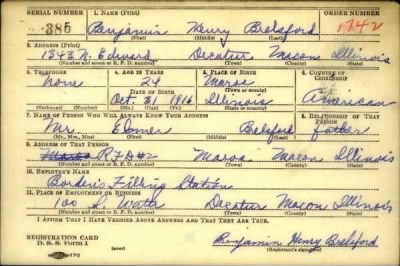 SERIAL NUMBER 1. NAME (Print) ORDER NUMBER
385 Benjamin Henry Brelsford 1742
(First) (Middle) (Last)
2. ADDRESS (Print)
1343 N. Edward Decatur Macon Illinois
(Number and street or R. F. D. number) (Town) (County) (State)
3. TELEPHONE 4. AGE IN YEARS 5. PLACE OF BIRTH 6. COUNTRY OF CITIZENSHIP
none 24 Maroa
(Town or county)
DATE OF BIRTH
Oct. 31 1916 Illinois American
(Mo.) (Day) (Yr.) (State or country)
7. NAME OF PERSON WHO WILL ALWAYS KNOW YOUR ADDRESS 8. RELATIONSHIP OF THAT PERSON
Mr. Elmer Brelsford father
(Mr., Mrs., Miss) (First) (Middle) (Last)
9. ADDRESS OF THAT PERSON
R.F.D. #2 Maroa Macon Illinois
(Number and street or R. F. D. number) (Town) (County) (State)
10. EMPLOYER'S NAME
Borden's Filling Station
11. PLACE OF EMPLOYMENT OR BUSINESS
100 S. Water Decatur Macon Illinois
(Number and street or R. F. D. number) (Town) (County) (State)
I AFFIRM THAT I HAVE VERIFIED ABOVE ANSWERS AND THAT THEY ARE TRUE.
REGISTRATION CARD
D. S. S. FORM 1 (over) Benjamin Henry Brelsford
(Registrant's signature)